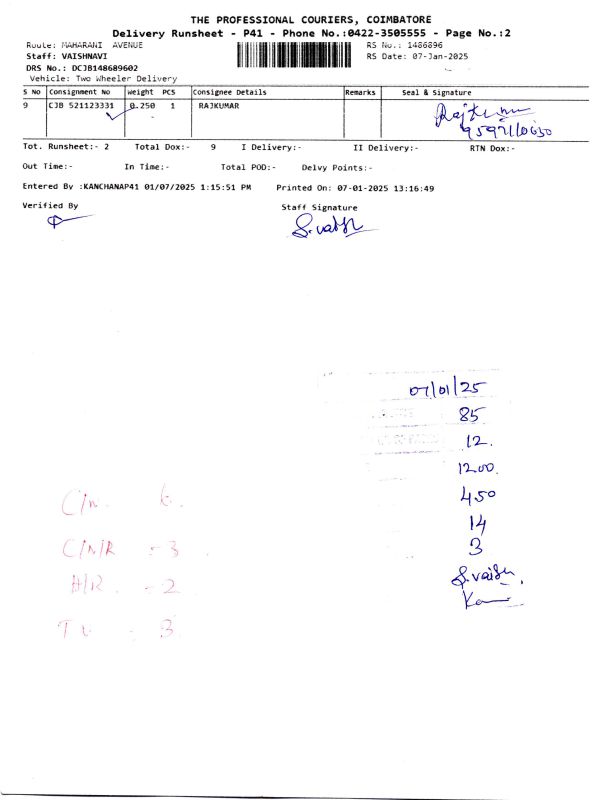 THE PROFESSIONAL COURIERS, COIMBATORE
Delivery Runsheet - P41 - Phone No.:0422-3505555 - Page No.:2
Route: MAHARANI AVENUE RS No.: 1486896
Staff: VAISHNAVI RS Date: 07-Jan-2025
DRS No.: DCJB148689602
Vehicle: Two Wheeler Delivery
S No Consignment No Weight PCS Consignee Details Remarks Seal & Signature
9 CJB 521123331 0.250 1 RAJKUMAR Rajkumar
Tot. Runsheet:- 2 Total Dox:- 9 I Delivery:- II Delivery:- RTN Dox:-
Out Time:- In Time:- Total POD:- Delvy Points:-
Entered By :KANCHANAP41 01/07/2025 1:15:51 PM Printed On: 07-01-2025 13:16:49
Verified By Staff Signature
S.vaish
07/01/25
85
12.
1200.
450
C/N. 6.
14
C/N/R - 3
3
H/R. - 2
S.vaish
3